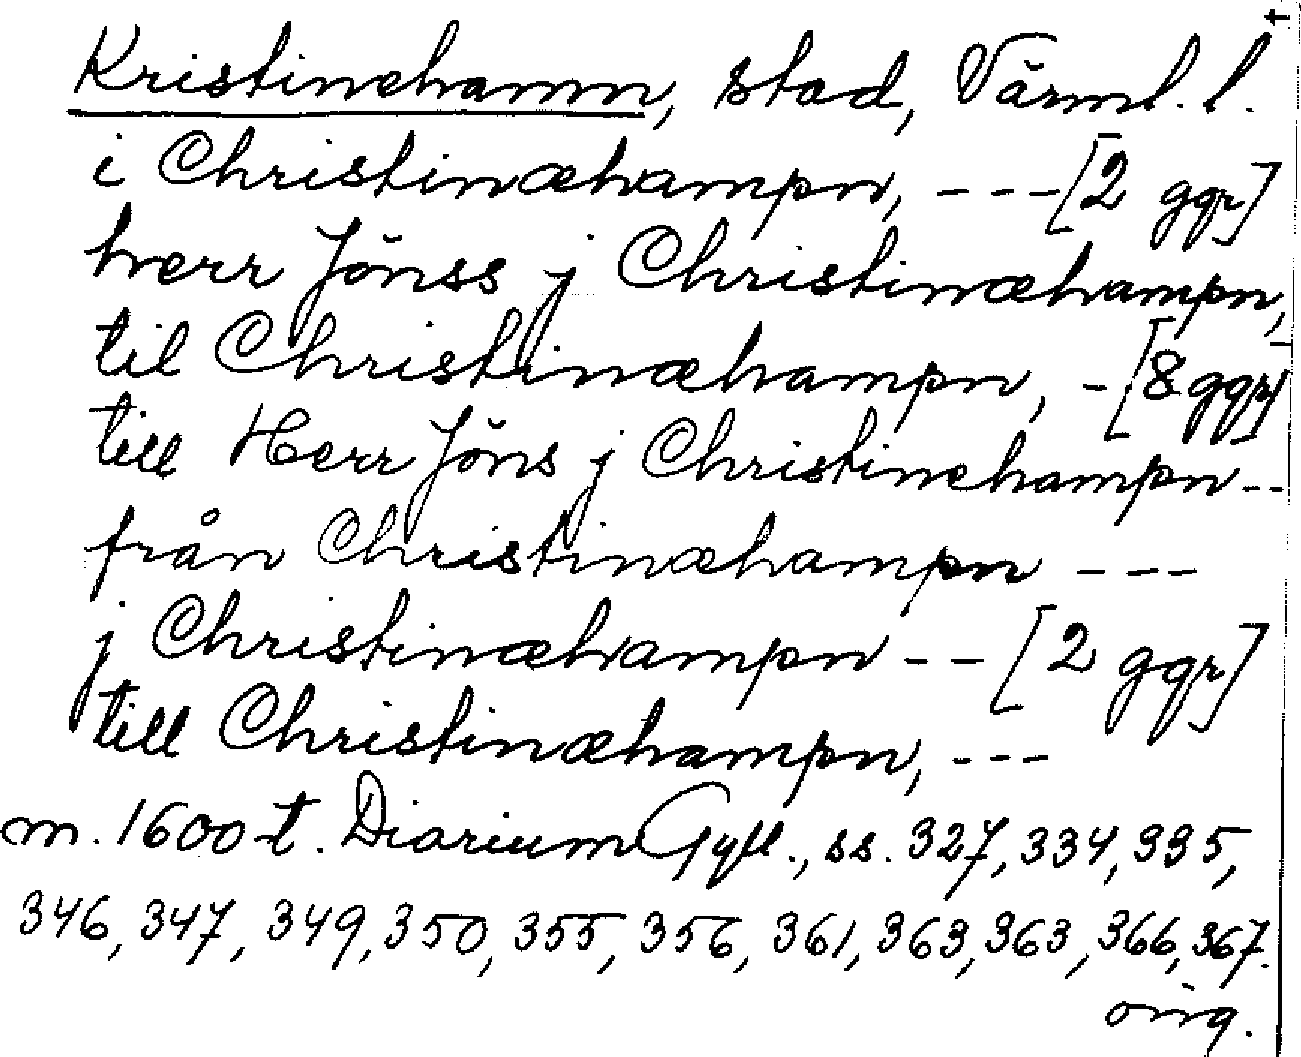 Kristinehamn, stad, Värml. l.
i Christinæhampn, - - - [2 ggr]
herr Jönss j Christinæhampn,
til Christinæhampn, - [8 ggr]
till Herr Jöns j Christinehampn - -
från Christinæhampn - - -
j Christinæhampn - - [2 ggr]
till Christinæhampn, - - -
m. 1600-t. Diarium Gyll., ss. 327, 334, 335,
346, 347, 349, 350, 355, 356, 361, 363, 363, 366, 367.
orig.